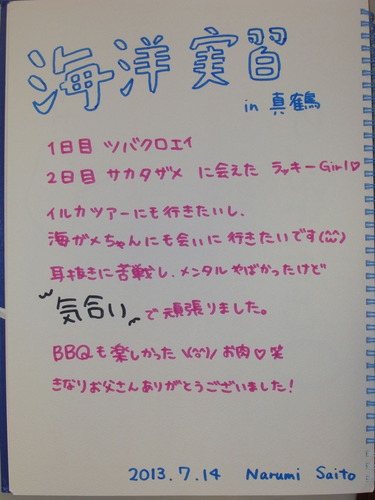 海洋実習
in 真鶴
1日目 ツバクロエイ
2日目 サカタザメ に会えた ラッキーGirl♡
イルカツアーにも行きたいし、
海ガメちゃんにも会いに行きたいです(^^)
耳抜きに苦戦し、メンタルやばかったけど
気合いで頑張りました。
BBQも楽しかった \(^^)/ お肉♡笑
きなりお父さんありがとうございました!
2013.7.14 Narumi Saito